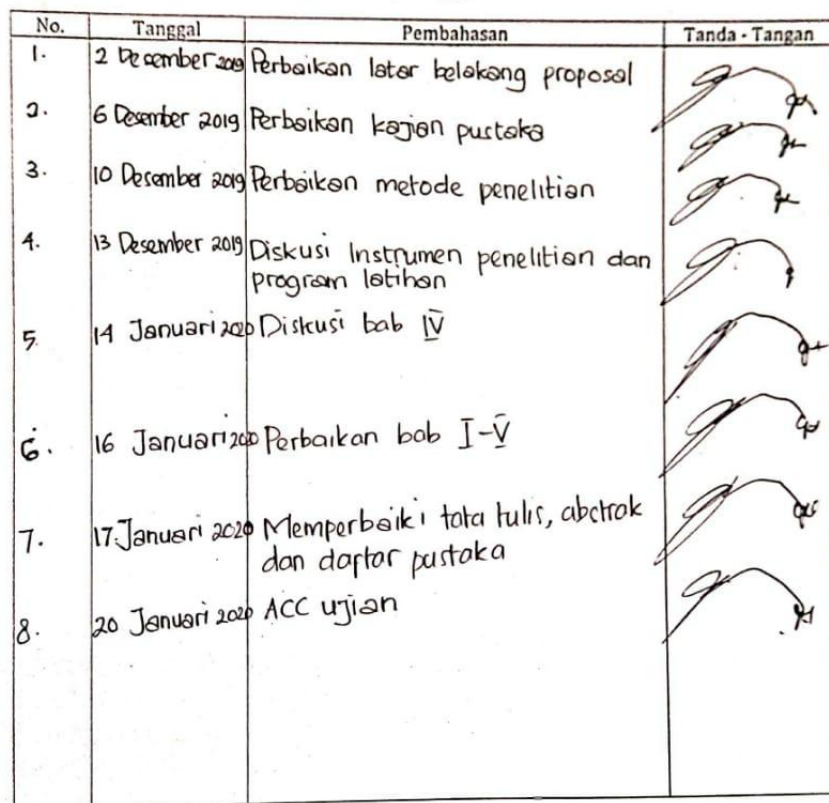 No. Tanggal Pembahasan Tanda - Tangan
1. 2 Desember 2019 Perbaikan latar belakang proposal
2. 6 Desember 2019 Perbaikan kajian pustaka
3. 10 Desember 2019 Perbaikan metode penelitian
4. 13 Desember 2019 Diskusi Instrumen penelitian dan
program latihan
5. 14 Januari 2020 Diskusi bab IV
6. 16 Januari 2020 Perbaikan bab I-V
7. 17 Januari 2020 Memperbaiki tata tulis, abstrak
dan daptar pustaka
8. 20 Januari 2020 ACC ujian